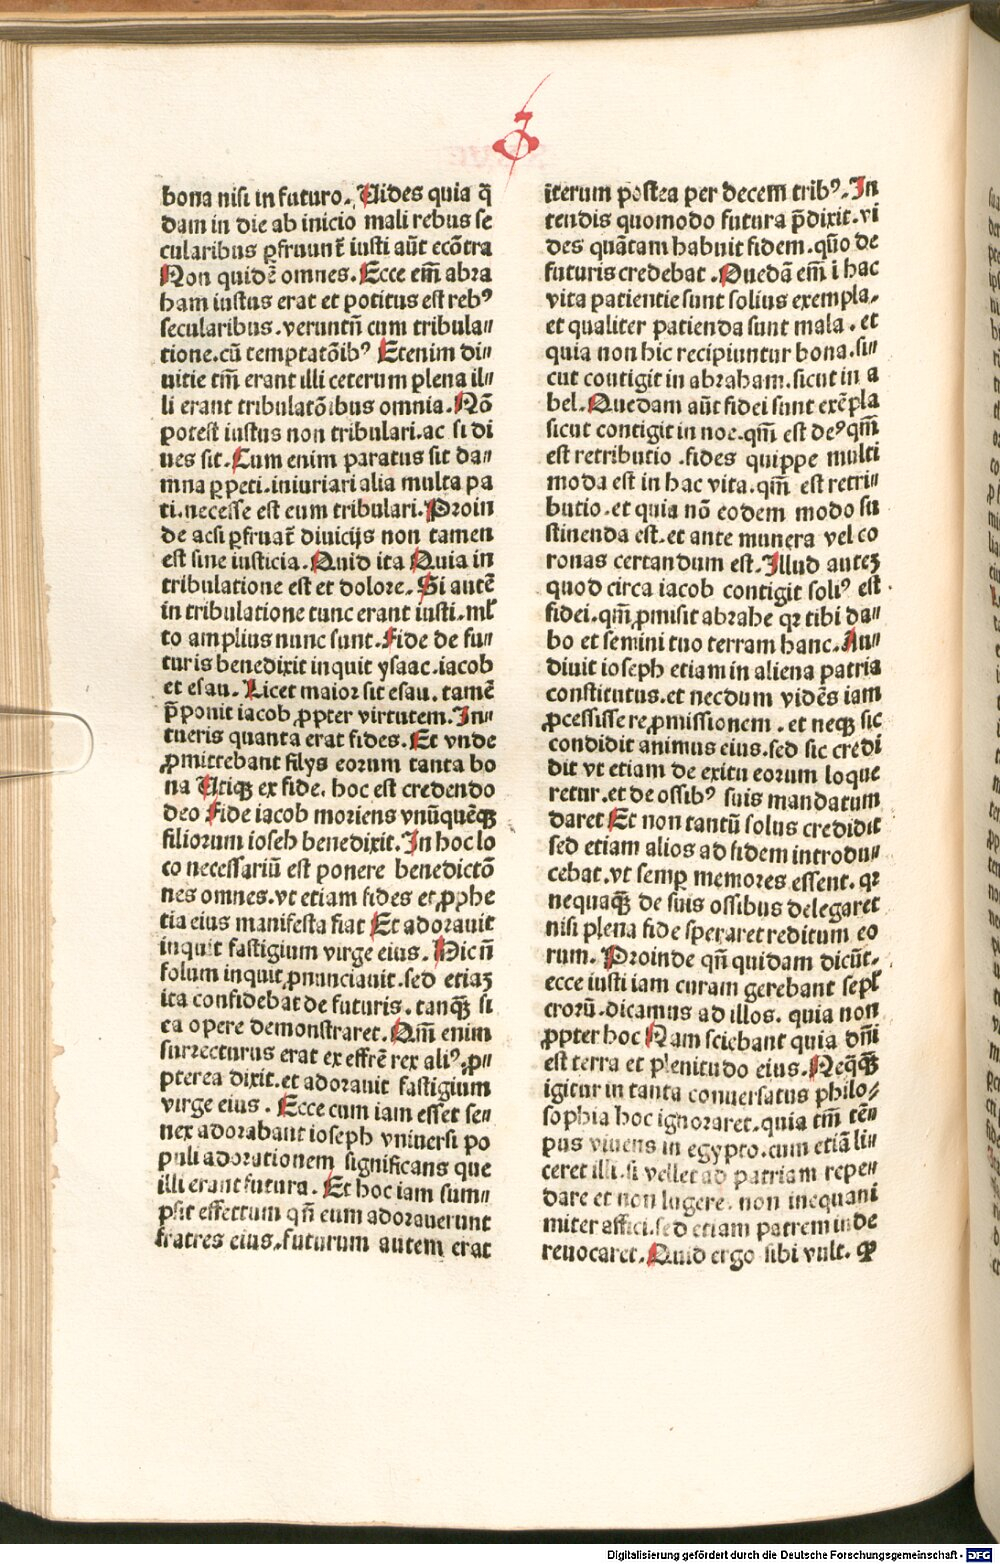 bona nisi in futuro. Uides quia q̄
dam in die ab inicio mali rebus se
cularibus ꝑfruunt̄ iusti aūt ecōtra
Non quidē omnes. Ecce em̄ abra
ham iustus erat et potitus est rebꝰ
secularibus. veruntn̄ cum tribula⸗
tione. cū temptatōibꝰ Etenim di⸗
uitie tm̄ erant illi ceterum plena il⸗
li erant tribulatōibus omnia. Nō
potest iustus non tribulari. ac si di
ues sit. Cum enim paratus sit da⸗
mna ꝑpeti. iniuriari alia multa pa
ti. necesse est eum tribulari. Proin
de acsi ꝑfruat̄ diuicijs non tamen
est sine iusticia. Quid ita Quia in
tribulatione est et dolore. Si autē
in tribulatione tunc erant iusti. ml̄
to amplius nunc sunt. Fide de fu⸗
turis benedixit inquit ysaac. iacob
et esau. Licet maior sit esau. tamē
p̄ponit iacob ꝓpter virtutem. In⸗
tueris quanta erat fides. Et vnde
ꝓmittebant filys eorum tanta bo
na Utiqꝫ ex fide. hoc est credendo
deo Fide iacob moriens vnūquēqꝫ
filiorum ioseh benedixit. In hoc lo
co necessariū est ponere benedictō
nes omnes. vt etiam fides et ꝓphe
tia eius manifesta fiat Et adorauit
inquit fastigium virge eius. Hic n̄
solum inquit ꝓnunciauit. sed etiaꝫ
ita confidebat de futuris. tanqꝫ̄ si
ea opere demonstraret. Qm̄ enim
surrecturus erat ex effrē rex aliꝰ. ꝓ⸗
pterea dixit. et adorauit fastigium
virge eius. Ecce cum iam esset se⸗
nex adorabant ioseph vniuersi po
puli adorationem significans que
illi erant futura. Et hoc iam sum⸗
psit effectum qn̄ eum adorauerunt
fratres eius. futurum autem erat
īterum postea per decem tribꝰ. In
tendis quomodo futura p̄dixit. vi
des quātam habuit fidem. qūo de
futuris credebat. Quedā em̄ ī hac
vita patientie sunt solius exempla.
et qualiter patienda sunt mala. et
quia non hic recipiuntur bona. si⸗
cut cōtigit in abraham. sicut in a
bel. Quedam aūt fidei sunt exēpla
sicut contigit in noe. qm̄ est deꝰ qm̄
est retributio. fides quippe multi
moda est in hac vita. qm̄ est retri⸗
butio. et quia nō eodem modo su
stinenda est. et ante munera vel co
ronas certandum est. Illud auteꝫ
quod circa iacob contigit soliꝰ est
fidei. qm̄ ꝓmisit abrahe qꝛ tibi da⸗
bo et semini tuo terram hanc. Au⸗
diuit ioseph etiam in aliena patria
constitutus. et necdum vidēs iam
ꝓcessisse reꝓmissionem. et neqꝫ sic
condidit animus eius. sed sic credi
dit vt etiam de exitu eorum loque
retur. et de ossibꝰ suis mandatum
daret Et non tantū solus credidit
sed etiam alios ad fidem introdu⸗
cebat. vt semꝑ memores essent. qꝛ
nequaqꝫ̄ de suis ossibus delegaret
nisi plena fide speraret reditum eo
rum. Proinde qn̄ quidam dicūt.
ecce iusti iam curam gerebant sepl̄
crorū. dicamus ad illos. quia non
ꝓpter hoc Nam sciebant quia dn̄i
est terra et plenitudo eius. Neq̄qꝫ̄
igitur in tanta conuersatus philo⸗
sophia hoc ignoraret. quia tm̄ tē⸗
pus viuens in egypto. cum etiā li⸗
ceret illi. si vellet ad patriam repe⸗
dare et non lugere. non inequani
miter affici. sed etiam patrem inde
reuocaret. Quid ergo sibi vult. ꝙ
Digitalisierung gefördert durch die Deutsche Forschungsgemeinschaft - DFG